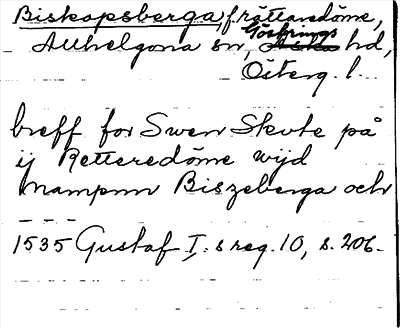 Biskopsberga, frättaredöme,
Allhelgona sn, Göstrings hd,
Österg. l.
breff for Swen Skute på
ij Retteredöme wijd
nampnn Biszeberga och
- - - -
1535 Gustaf I:s reg. 10, s. 206.